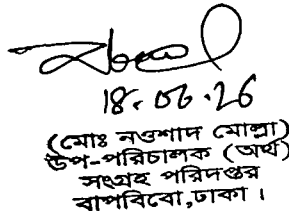 18.06.26
(মোঃ নওশাদ মোল্লা)
উপ-পরিচালক (অর্থ)
সংগ্রহ পরিদপ্তর
বাপবিবো, ঢাকা ।